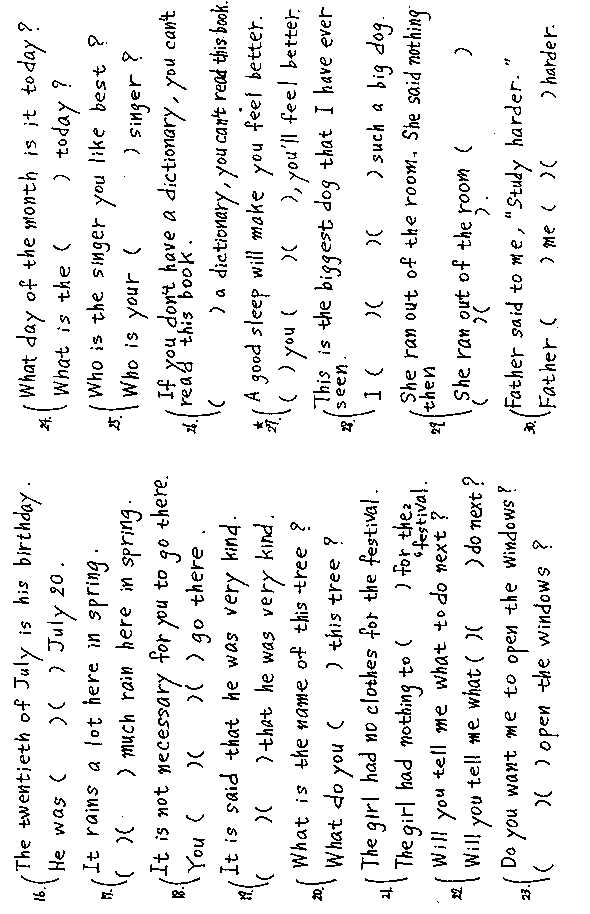 16. The twentieth of July is his birthday.
He was ( )( ) July 20.
17. It rains a lot here in spring.
( )( ) much rain here in spring.
18. It is not necessary for you to go there.
You ( )( )( ) go there.
19. It is said that he was very kind.
( )( ) that he was very kind.
20. What is the name of this tree?
What do you ( ) this tree?
21. The girl had no clothes for the festival.
The girl had nothing to ( ) for the festival.
22. Will you tell me what to do next?
Will you tell me what ( )( ) do next?
23. Do you want me to open the windows?
( )( ) open the windows?
24. What day of the month is it today?
What is the ( ) today?
25. Who is the singer you like best?
Who is your ( ) singer?
26. If you don't have a dictionary, you can't
read this book.
( ) a dictionary, you can't read this book.
*27. A good sleep will make you feel better.
( ) you ( )( ), you'll feel better.
28. This is the biggest dog that I have ever
seen.
I ( )( )( ) such a big dog.
29. She ran out of the room. She said nothing
then
She ran out of the room ( )
( )( ).
30. Father said to me, "Study harder."
Father ( ) me ( )( ) harder.